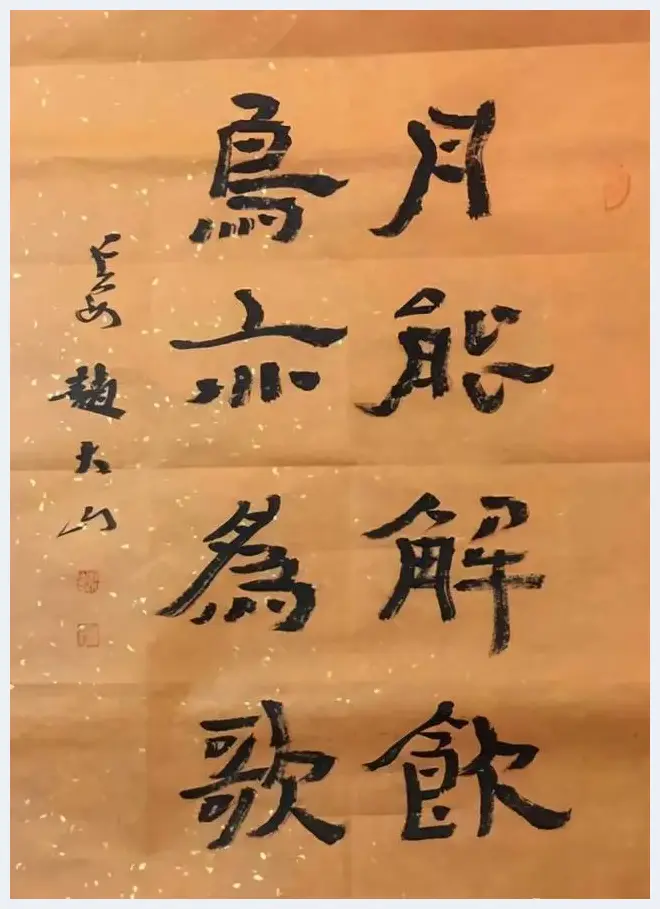 月能解飲
鳥亦為歌
趙大山